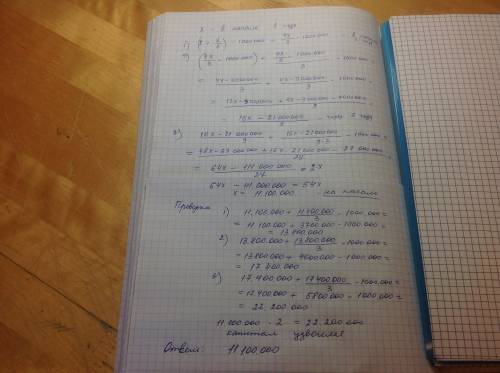 x - в начале 1 года
1) (x + x/3) - 1000000 = 4x/3 - 1000000 -
2) (4x/3 - 1000000) + (4x/3 - 1000000)/3 - 1000000 =
= (4x - 3000000)/3 + (4x - 3000000)/9 - 1000000 =
= (12x - 9000000 + 4x - 3000000 - 9000000)/9 =
= (16x - 21000000)/9 - через 2 года
3) (16x - 21000000)/9 + (16x - 21000000)/(9·3) - 1000000 =
= (48x - 63000000 + 16x - 21000000 - 27000000)/27 =
= (64x - 111000000)/27 = 2x
64x - 111000000 = 54x
x = 11.100.000 - на начало
Проверка
1) 11.100.000 + 11.100.000/3 - 1000000 =
= 11.100.000 + 3700000 - 1000000 =
= 13.800.000
2) 13.800.000 + 13.800.000/3 - 1000000 =
= 13800000 + 4600000 - 1000000 =
= 17.400.000
3) 17.400.000 + 17400000/3 - 1000000 =
= 17400000 + 5800000 - 1000000 =
= 22.200.000
11.100.000 · 2 = 22.200.000
капитал удвоился
Ответ: 11100000